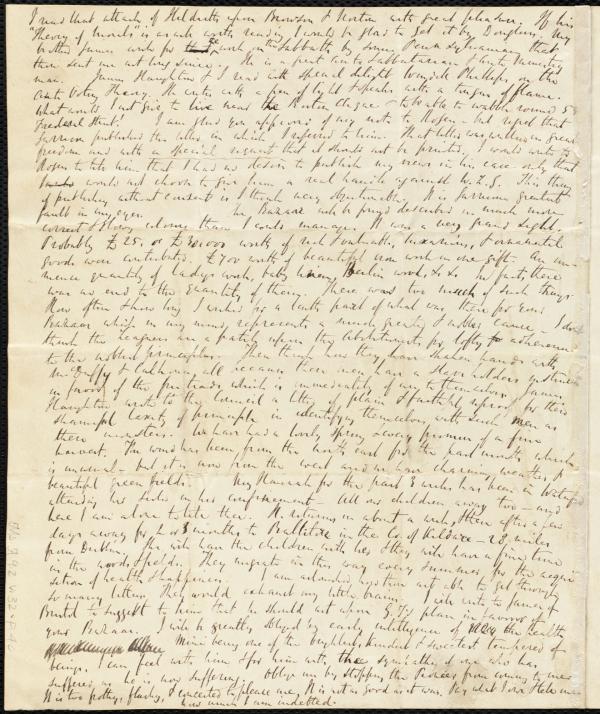 I read that attack of Hildreth's upon Brownson & Norton with great pleasure. If his
"Theory of Morals" is as well worth reading I would be glad to get it by Douglass. My
brother James works for the work on the Sabbath by some Pennsylvanian that
than sent me not long since. He is a great anti Sabbatarian & anti Ministry
man. James Haughton & I read with special delight Wendell Phillips on the
anti Voting Theory. He writes with a pen of light & speaks with a tongue of flame.
what would I not give to live near the Boston clique & to be able to walk round 5
Federal Street! I am glad you approved of my note to Rogers - but regret that
Garrison published the letter in which I referred to him. That letter was written in great
freedom and with a special request that it should not be printed. I would write to
Rogers to tell him that I had no desire to publish my views in his case only that
I would not choose to give him a real handle against W.L.G. This thing
of publishing without consent is I think very objectionable. It is Garrison's greatest
fault in my eyes. The Bazaar will be found described in much more
correct & glowing colours than I could manage. It was a very grand sight.
Probably £25, or £30,000 worth of real & valuable, luxurious, & ornamental
goods were contributed. £700 worth of beautiful iron work in one gift. An im-
mense quantity of ladys work, baby linen, Berlin wool, &c &c. In fact, there
was no end to the quantity of them. There was too much of such things
How often & how long I wished for a tenth part of what was there for your
Bazaar which in my mind represents a much greater & nobler cause. I don't
think the leaguers are a patch upon the abolitionists for lofty adherence
to the noblest principles. Then think how they have shaken hands with
McDuffy & Calhoun, all because these men have a slaveholders instinct
in favor of the free trade which is immediately of use to themselves. James
Haughton wrote to the Council a letter of plain & faithful reproof for their
shameful laxity of principle in identifying themselves with such men as
these monsters. We have had a lovely spring & every promise of a fine
harvest. The wind has been from the north east for the past month, which
is unusual - but it is now from the west and we have charming weather &
beautiful green fields. My Hannah for the past 3 weeks has been in Waterford
attending his sister in her confinement. All our children away too - and
here I am alone to tell thee. H. returns in about a week, & then after a few
days away for 2 or 3 months to Ballitore in the Co. of Kildare - 28 miles
from Dublin. She will have the children with her & they will have a fine time
in the woods & fields. They migrate in this way every summer for the acqui-
sition of health & happiness. I am astonished anyone can be able to get through
so many letters. They would exhaust my little brain. I will write to James of
Bristol to suggest to him that he should act upon G.T.'s plan, in favour of
your Bazaar. I will be greatly obliged by early intelligence of the health
Mine being one of the brightest, kindest & sweetest tempered of
beings, I can feel with him & for him with the sympathies of one who has
suffered as he is now suffering. Oblige me by stopping the Pioneer from coming to me.
It is too paltry, flashy, & conceited to please me. It is not as good as it was. Pay what I owe & let me
how much I am indebted.